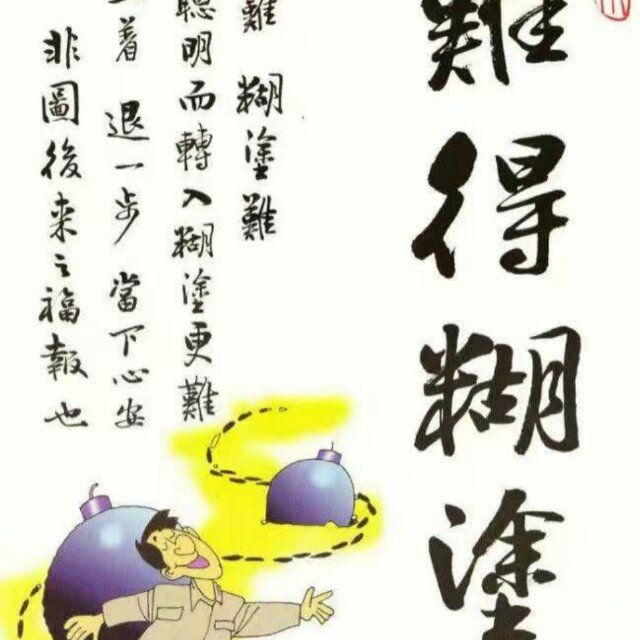 難得糊塗
難 糊塗難
聰明而轉入糊塗更難
著 退一步 當下心安
非圖後来之福報也